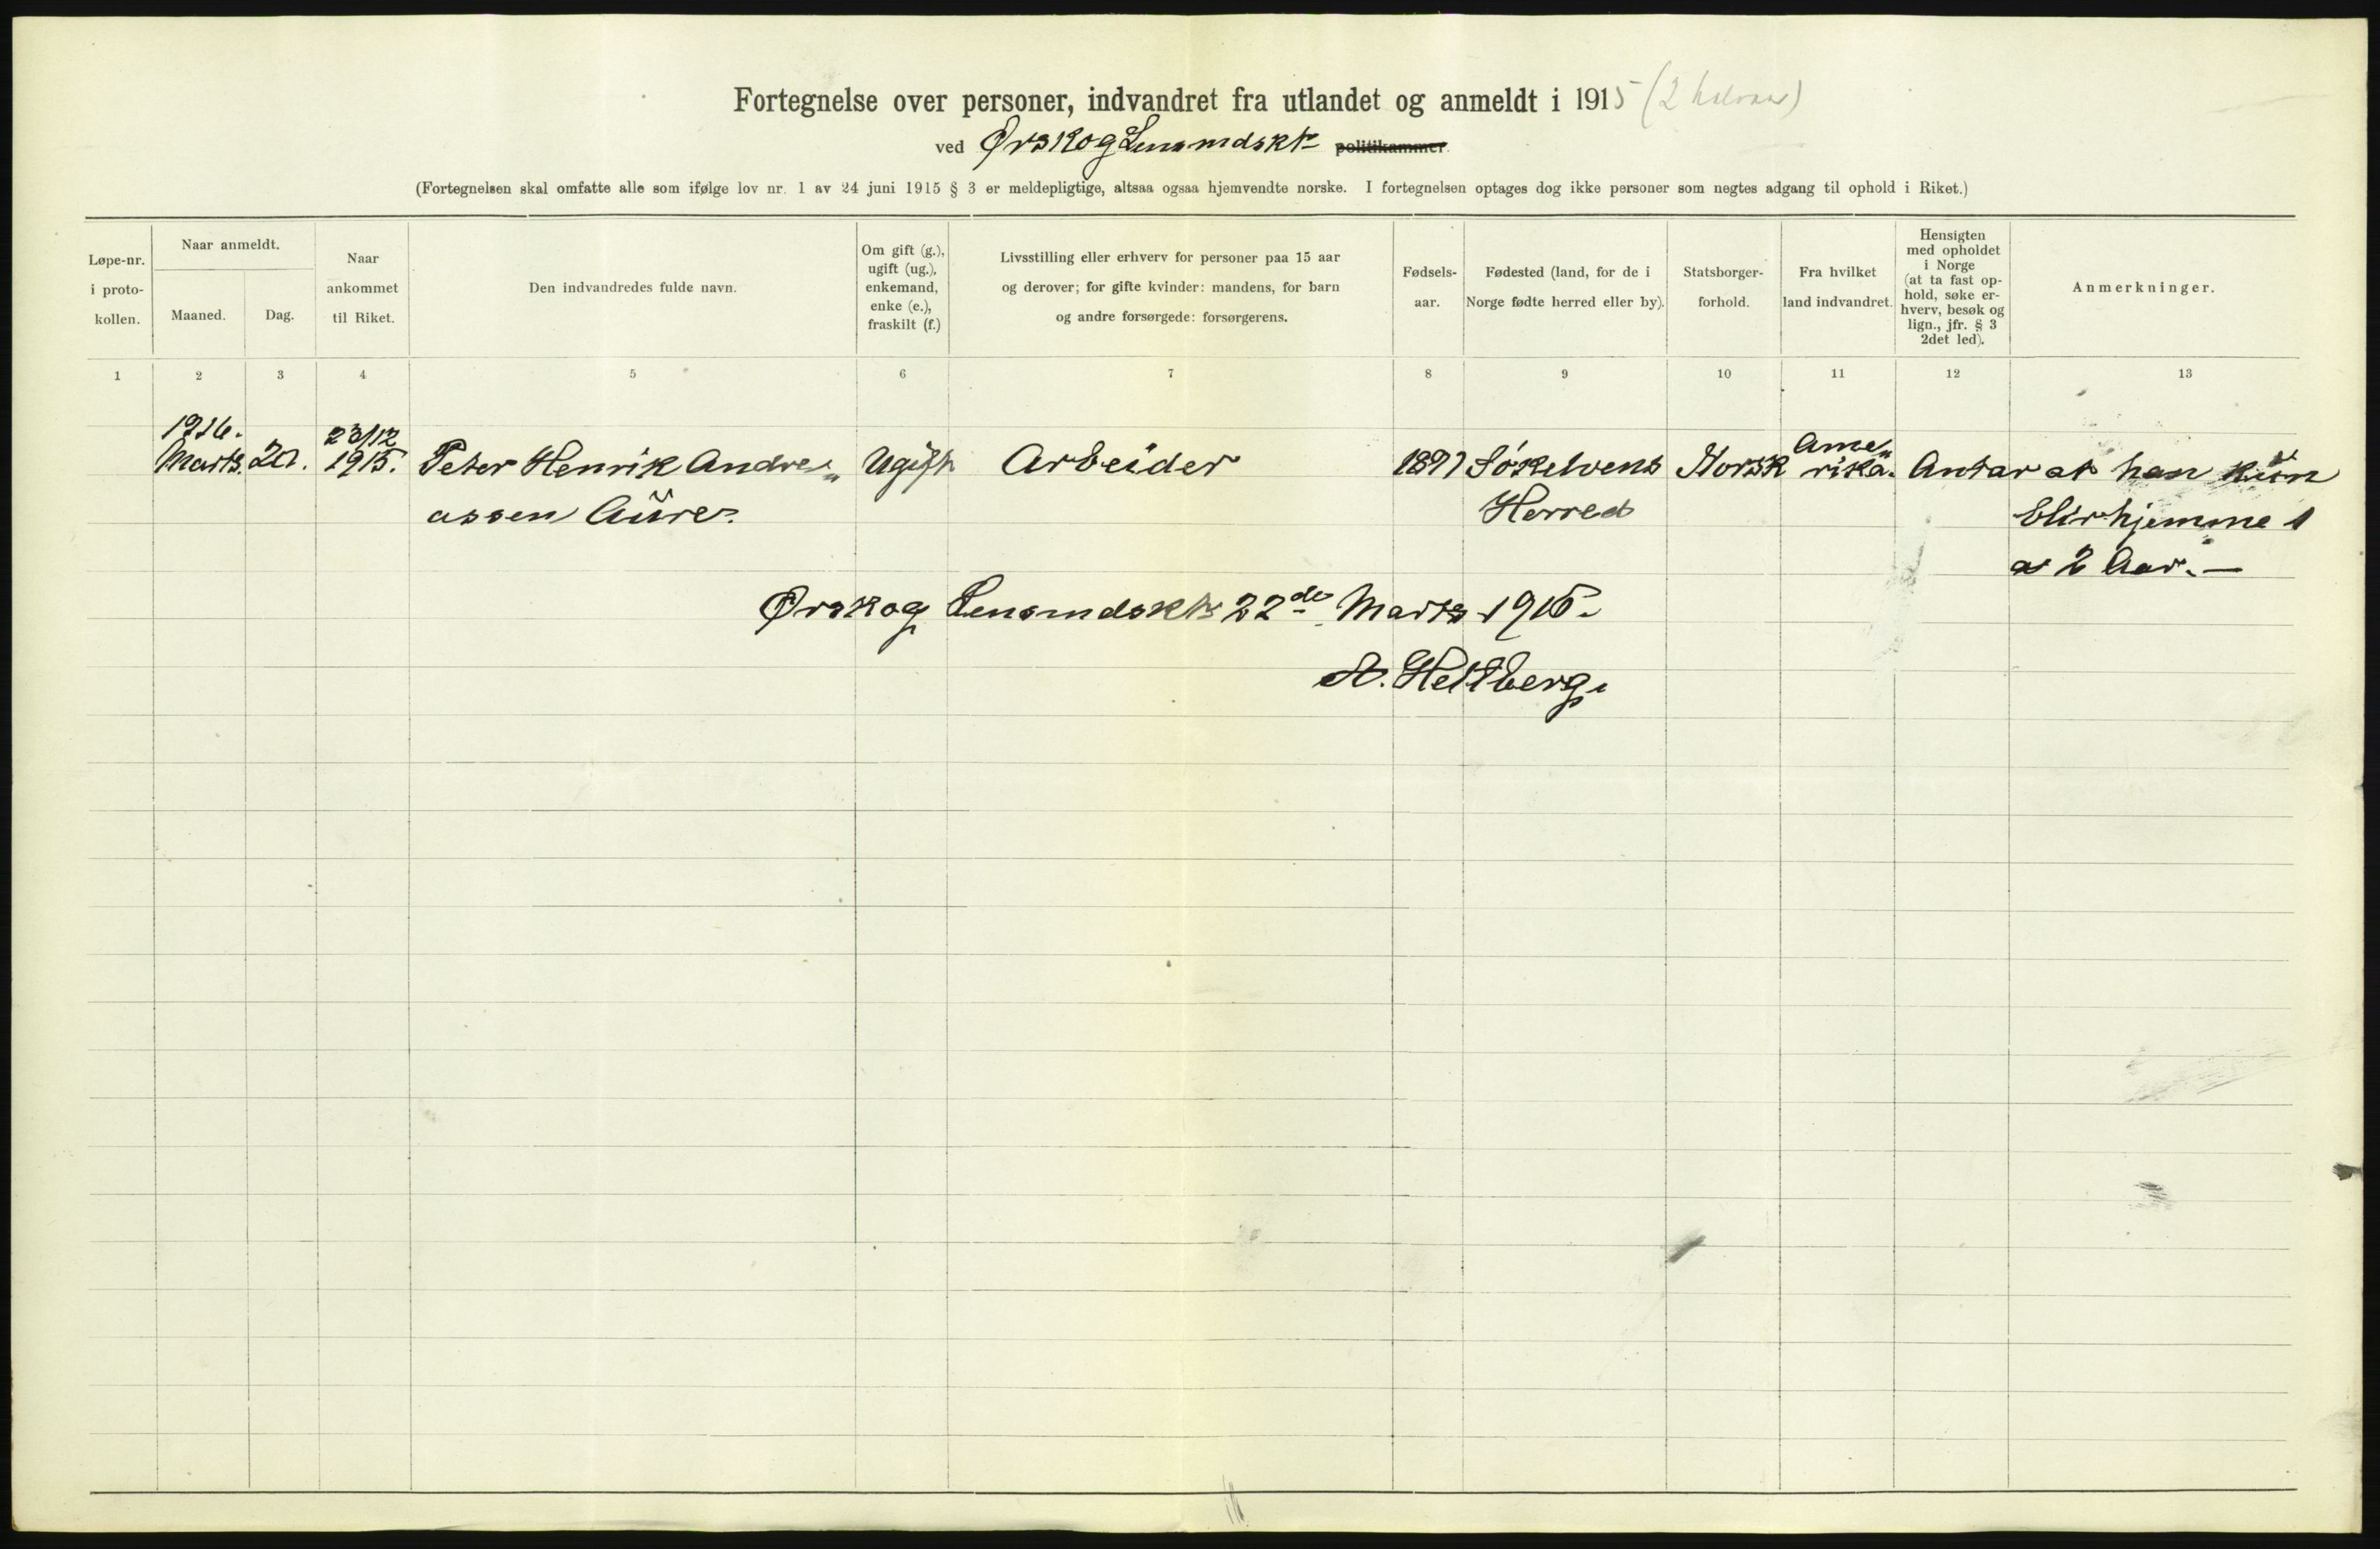 Fortegnelse over personer, indvandret fra utlandet og anmeldt i 1915 (2 halvaar)
ved Ørskog Lensmdskt politikammer.
(Fortegnelsen skal omfatte alle som ifølge lov nr. 1 av 24 juni 1915 § 3 er meldepligtige, altsaa ogsaa hjemvendte norske. I fortegnelsen optages dog ikke personer som negtes adgang til ophold i Riket.)
Løpe-nr.
i proto-
kollen.
Naar anmeldt.
Maaned.
Dag.
Naar
ankommet
til Riket.
Den indvandredes fulde navn.
Om gift (g.),
ugift (ug.),
enkemand,
enke (e.),
fraskilt (f.)
Livsstilling eller erhverv for personer paa 15 aar
og derover; for gifte kvinder: mandens, for barn
og andre forsørgede: forsørgerens.
Fødsels-
aar.
Fødested (land, for de i
Norge fødte herred eller by).
Statsborger-
forhold.
Fra hvilket
land indvandret.
Hensigten
med opholdet
i Norge
(at ta fast op-
hold, søke er-
hverv, besøk og
lign., jfr. § 3
2det led).
Anmerkninger.
1 2 3 4 5 6 7 8 9 10 11 12 13
1916. 23/12 Ame„
Marts. 20. 1915. Peter Henrik Andre„ Ugift Arbeider 1897 Søkelvens Norsk rika. Antar at han kŭn
assen Aŭre. Herred blir hjemme 1
a 2 Aar. —
Ørskog Lensmdskt 22de Marts 1916.
A. Heltberg.